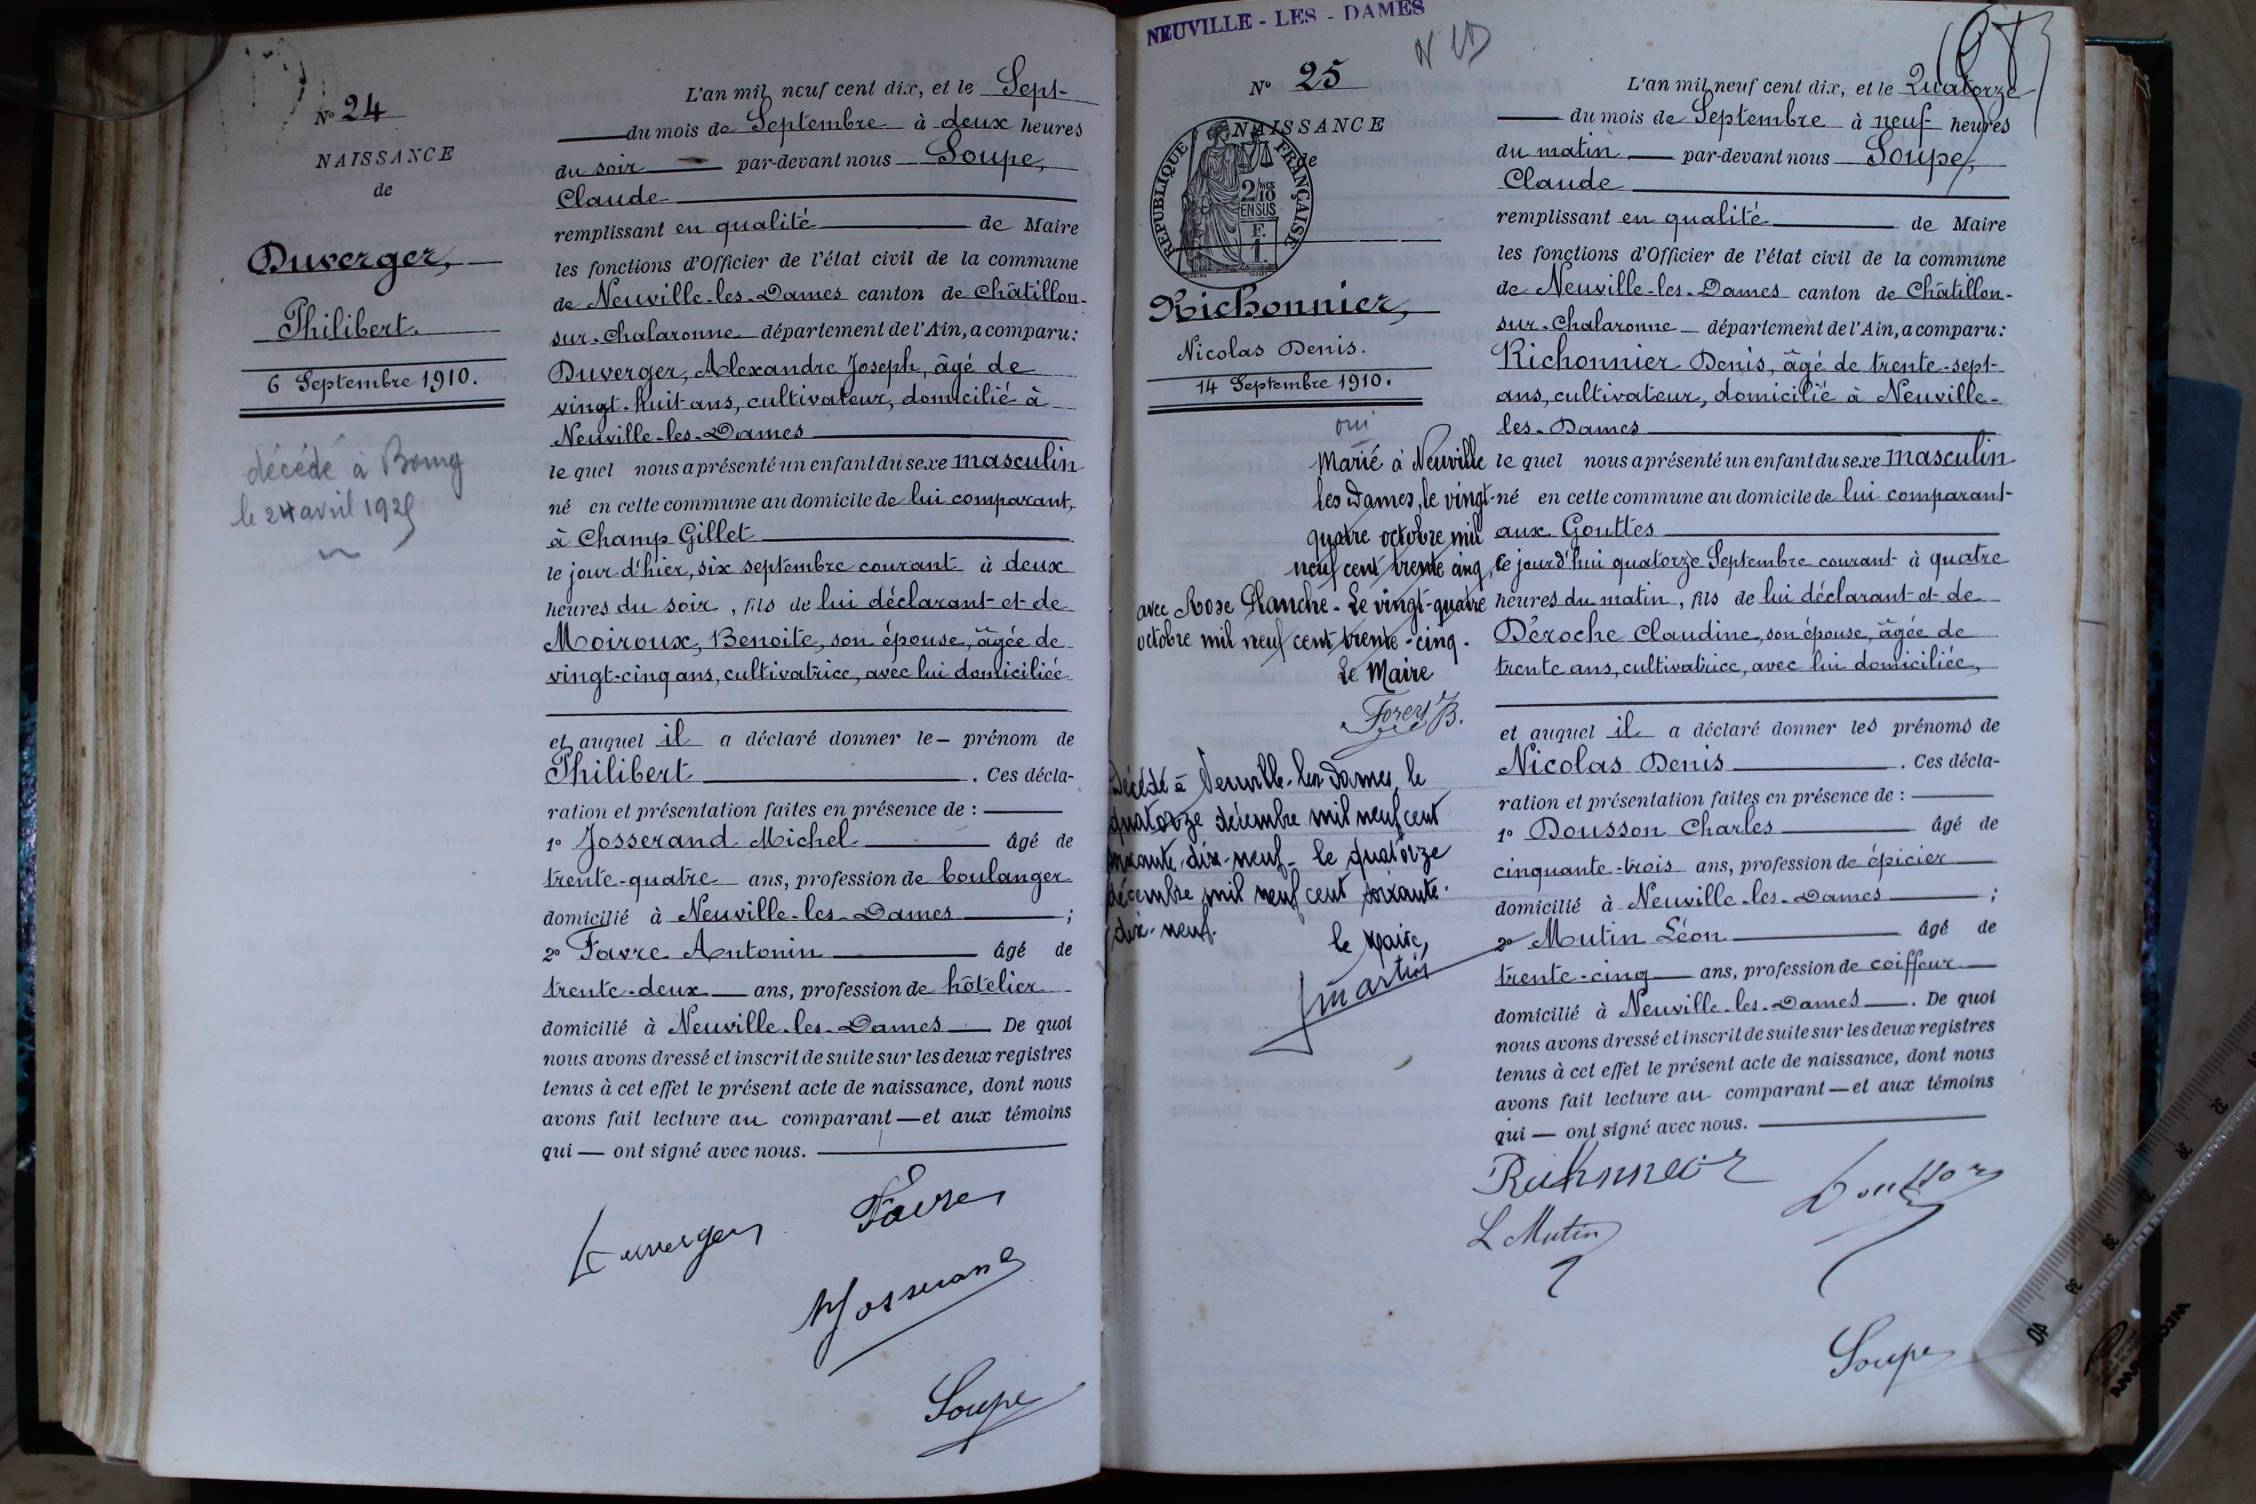 N° 24
NAISSANCE
de
Duverger,
Philibert.
6 Septembre 1910.
décédé à Bourg
le 24 avril 192
L'an mil neuf cent dix, et le Sept
du mois de Septembre à deux heures
du soir par-devant nous Soupe,
Claude
remplissant en qualité de Maire
les fonctions d'Officier de l'état civil de la commune
de Neuville-les-Dames canton de Châtillon-
sur-Chalaronne département de l'Ain, a comparu:
Duverger, Alexandre Joseph, âgé de
vingt-huit ans, cultivateur, domicilié à
Neuville-les-Dames
le quel nous a présenté un enfant du sexe masculin
né en cette commune au domicile de lui comparant,
à Champ Gillet
le jour d'hier, six septembre courant à deux
heures du soir, fils de lui déclarant et de
Moiroux, Benoite, son épouse, âgée de
vingt-cinq ans, cultivatrice, avec lui domiciliée
et auquel il a déclaré donner le prénom de
Philibert. Ces décla-
ration et présentation faites en présence de :
1° Josserand Michel âgé de
trente-quatre ans, profession de boulanger
domicilié à Neuville-les-Dames ;
2° Favre Antonin âgé de
trente-deux ans, profession de hôtelier
domicilié à Neuville-les-Dames De quoi
nous avons dressé et inscrit de suite sur les deux registres
tenus à cet effet le présent acte de naissance, dont nous
avons fait lecture au comparant et aux témoins
qui ont signé avec nous.
Duverger Favre
Josserand
Soupe
NEUVILLE - LES - DAMES
N LD
N° 25
NAISSANCE
de
RÉPUBLIQUE FRANÇAISE
2/10MES
EN SUS
F.
1.
Richonnier,
Nicolas Denis.
14 Septembre 1910.
oui
Marié à Neuville
les Dames, le vingt-
quatre octobre mil
neuf cent trente cinq,
avec Rose Planche - Le vingt-quatre
octobre mil neuf cent trente-cinq.
Le Maire
Décédé à Neuville-les-Dames, le
quatorze décembre mil neuf cent
soixante-dix-neuf - le quatorze
décembre mil neuf cent soixante-
dix-neuf.
le Maire,
Martin
L'an mil neuf cent dix, et le Quatorze
du mois de Septembre à neuf heures
du matin par-devant nous Soupe,
Claude
remplissant en qualité de Maire
les fonctions d'Officier de l'état civil de la commune
de Neuville-les-Dames canton de Châtillon-
sur-Chalaronne département de l'Ain, a comparu:
Richonnier Denis, âgé de trente-sept
ans, cultivateur, domicilié à Neuville-
les-Dames
le quel nous a présenté un enfant du sexe masculin
né en cette commune au domicile de lui comparant
aux Gouttes
ce jourd'hui quatorze Septembre courant à quatre
heures du matin, fils de lui déclarant et de
Déroche Claudine, son épouse, âgée de
trente ans, cultivatrice, avec lui domiciliée,
et auquel il a déclaré donner les prénoms de
Nicolas Denis. Ces décla-
ration et présentation faites en présence de :
1° Dousson Charles âgé de
cinquante-trois ans, profession de épicier
domicilié à Neuville-les-Dames ;
2° Mutin Léon âgé de
trente-cinq ans, profession de coiffeur
domicilié à Neuville-les-Dames. De quoi
nous avons dressé et inscrit de suite sur les deux registres
tenus à cet effet le présent acte de naissance, dont nous
avons fait lecture au comparant et aux témoins
qui ont signé avec nous.
Richonnier Dousson
L Mutin
Soupe